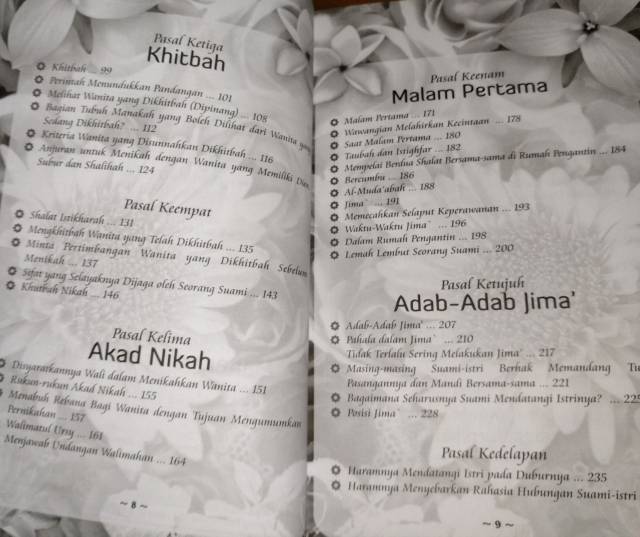 Pasal Ketiga
Khitbah
Khitbah ... 99
Perintah Menundukkan Pandangan ... 101
Melihat Wanita yang Dikhitbah (Dipinang) ... 108
Bagian Tubuh Manakah yang Boleh Dilihat dari Wanita yang
Sedang Dikhitbah? ... 112
Kriteria Wanita yang Disunnahkan Dikhitbah ... 116
Anjuran untuk Menikah dengan Wanita yang Memiliki Dien
Subur dan Shalihah ... 124
Pasal Keempat
Shalat Istikharah ... 131
Mengkhitbah Wanita yang Telah Dikhitbah ... 135
Minta Pertimbangan Wanita yang Dikhitbah Sebelum
Menikah ... 137
Sifat yang Selayaknya Dijaga oleh Seorang Suami ... 143
Khutbah Nikah ... 146
Pasal Kelima
Akad Nikah
Disyaratkannya Wali dalam Menikahkan Wanita ... 151
Rukun-rukun Akad Nikah ... 155
Menabuh Rebana Bagi Wanita dengan Tujuan Mengumumkan
Pernikahan ... 157
Walimatul Ursy ... 161
Menjawab Undangan Walimahan ... 164
~ 8 ~
Pasal Keenam
Malam Pertama
Malam Pertama ... 171
Wawangian Melahirkan Kecintaan ... 178
Saat Malam Pertama ... 180
Taubah dan Istighfar ... 182
Mempelai Berdua Shalat Bersama-sama di Rumah Pengantin ... 184
Bercumbu ... 186
Al-Muda'abah ... 188
Jima` ... 191
Memecahkan Selaput Keperawanan ... 193
Waktu-Waktu Jima` ... 196
Dalam Rumah Pengantin ... 198
Lemah Lembut Seorang Suami ... 200
Pasal Ketujuh
Adab-Adab Jima'
Adab-Adab Jima' ... 207
Pahala dalam Jima` ... 210
Tidak Terlalu Sering Melakukan Jima` ... 217
Masing-masing Suami-istri Berhak Memandang Tu
Pasangannya dan Mandi Bersama-sama ... 221
Bagaimana Seharusnya Suami Mendatangi Istrinya? ... 225
Posisi Jima` ... 228
Pasal Kedelapan
Haramnya Mendatangi Istri pada Duburnya ... 235
Haramnya Menyebarkan Rahasia Hubungan Suami-istri
~ 9 ~